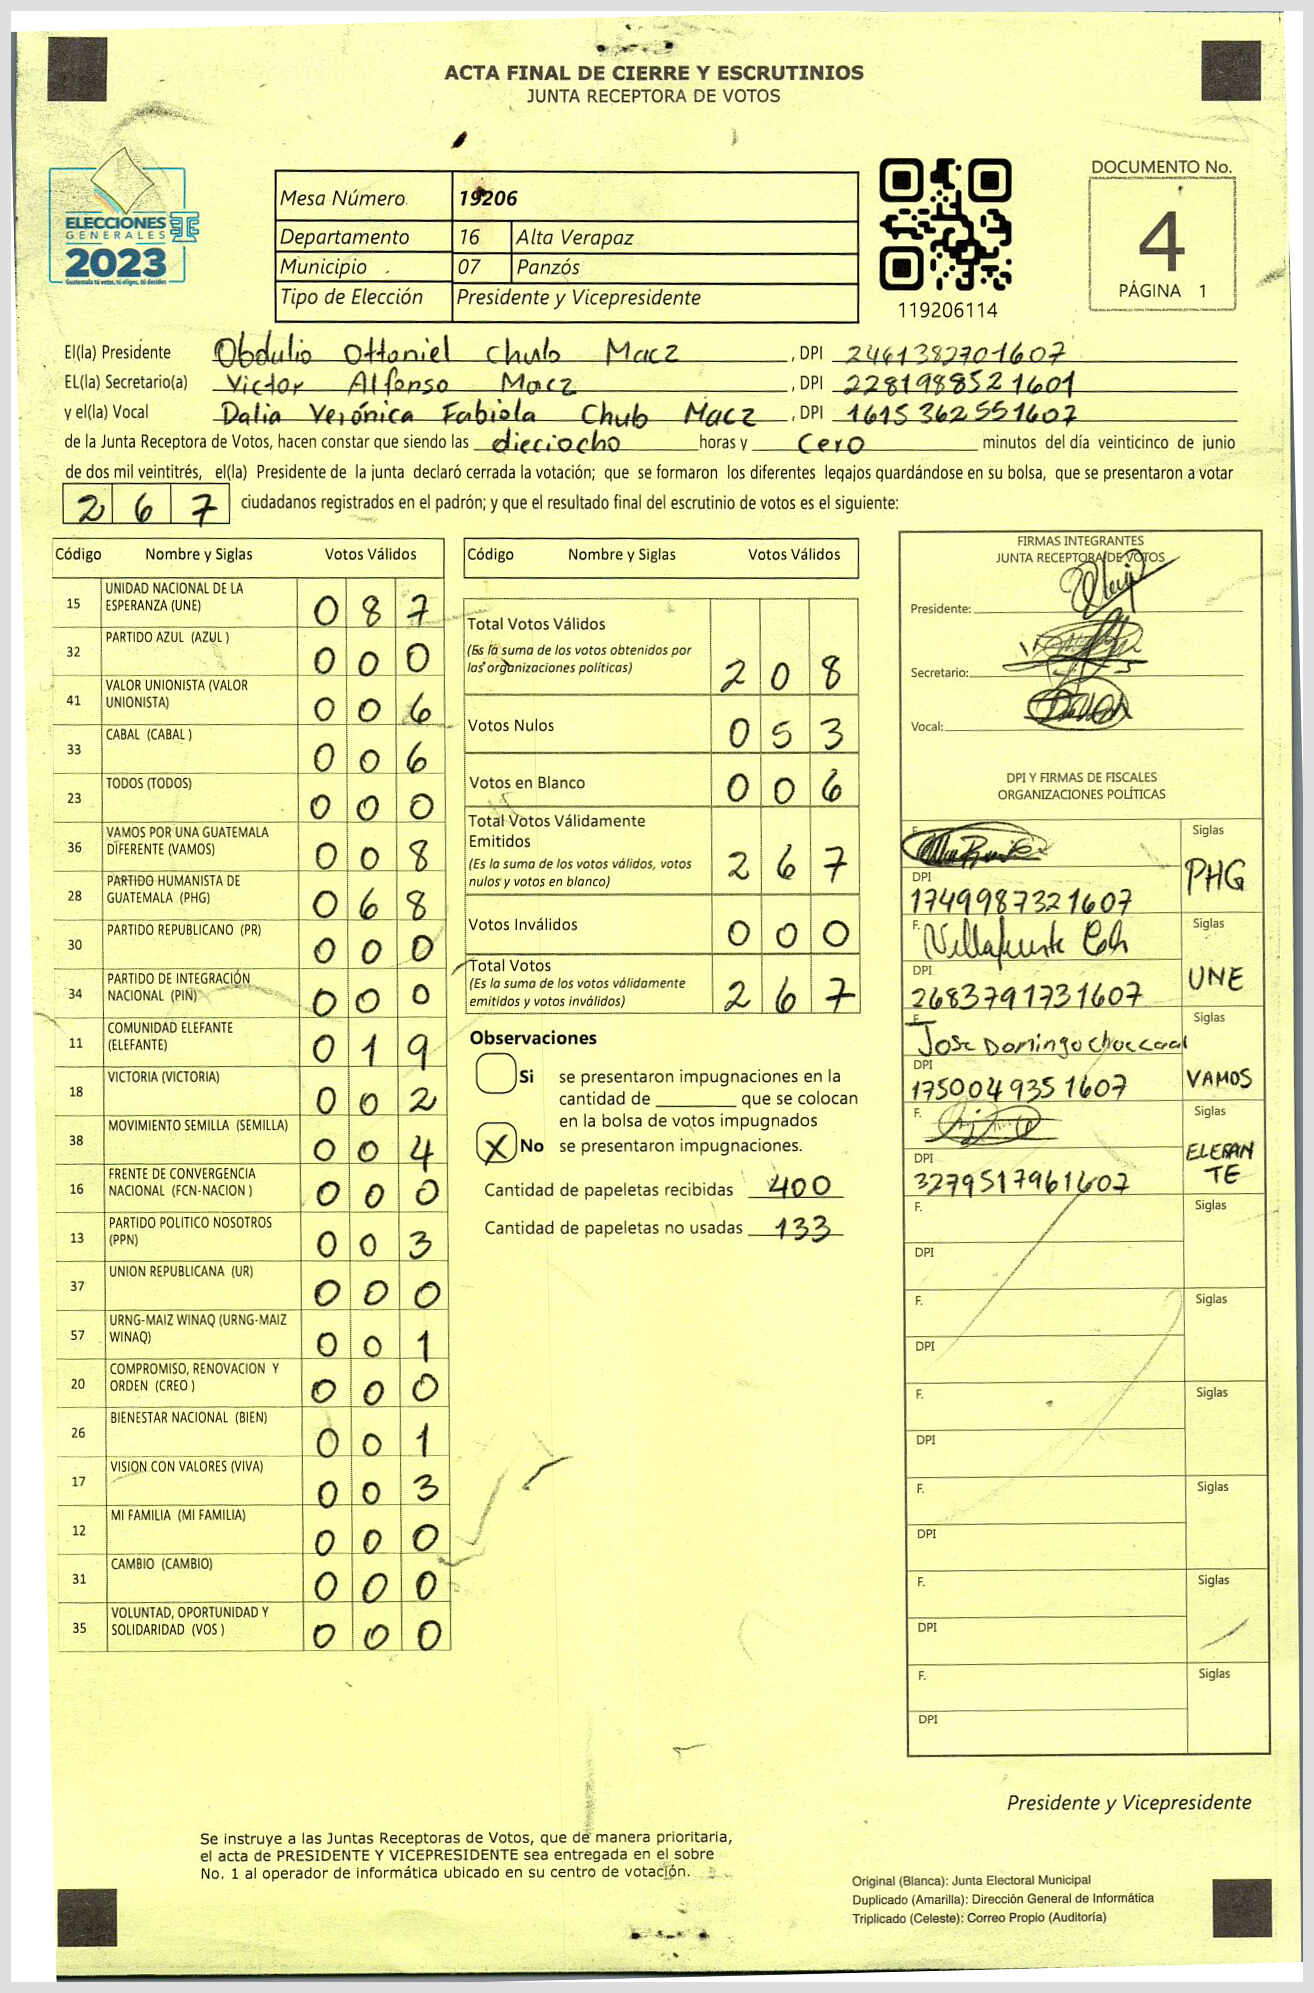 ACTA FINAL DE CIERRE Y ESCRUTINIOS
JUNTA RECEPTORA DE VOTOS
ELECCIONES
GENERALES
2023
Guatemala tú votas, tú eliges, tú decides
Mesa Número 19206
Departamento 16 Alta Verapaz
Municipio 07 Panzós
Tipo de Elección Presidente y Vicepresidente
119206114
DOCUMENTO No.
4
PÁGINA 1
El(la) Presidente Obdulio Ottoniel Chub Macz, DPI 2461382701607
EL(la) Secretario(a) Victor Alfonso Macz, DPI 2281988521601
y el(la) Vocal Dalia Verónica Fabiola Chub Macz, DPI 1615362551607
de la Junta Receptora de Votos, hacen constar que siendo las dieciocho horas y cero minutos del día veinticinco de junio
de dos mil veintitrés, el(la) Presidente de la junta declaró cerrada la votación; que se formaron los diferentes legajos guardándose en su bolsa, que se presentaron a votar
267 ciudadanos registrados en el padrón; y que el resultado final del escrutinio de votos es el siguiente:
Código Nombre y Siglas Votos Válidos
15 UNIDAD NACIONAL DE LA ESPERANZA (UNE) 087
32 PARTIDO AZUL (AZUL ) 000
41 VALOR UNIONISTA (VALOR UNIONISTA) 006
33 CABAL (CABAL ) 006
23 TODOS (TODOS) 000
36 VAMOS POR UNA GUATEMALA DIFERENTE (VAMOS) 008
28 PARTIDO HUMANISTA DE GUATEMALA (PHG) 068
30 PARTIDO REPUBLICANO (PR) 000
34 PARTIDO DE INTEGRACIÓN NACIONAL (PIN) 000
11 COMUNIDAD ELEFANTE (ELEFANTE) 019
18 VICTORIA (VICTORIA) 002
38 MOVIMIENTO SEMILLA (SEMILLA) 004
16 FRENTE DE CONVERGENCIA NACIONAL (FCN-NACION ) 000
13 PARTIDO POLITICO NOSOTROS (PPN) 003
37 UNION REPUBLICANA (UR) 000
57 URNG-MAIZ WINAQ (URNG-MAIZ WINAQ) 001
20 COMPROMISO, RENOVACION Y ORDEN (CREO ) 000
26 BIENESTAR NACIONAL (BIEN) 001
17 VISION CON VALORES (VIVA) 003
12 MI FAMILIA (MI FAMILIA) 000
31 CAMBIO (CAMBIO) 000
35 VOLUNTAD, OPORTUNIDAD Y SOLIDARIDAD (VOS ) 000
Código Nombre y Siglas Votos Válidos
Total Votos Válidos
(Es la suma de los votos obtenidos por
las organizaciones políticas) 208
Votos Nulos 053
Votos en Blanco 006
Total Votos Válidamente
Emitidos
(Es la suma de los votos válidos, votos
nulos y votos en blanco) 267
Votos Inválidos 000
Total Votos
(Es la suma de los votos válidamente
emitidos y votos inválidos) 267
Observaciones
Si se presentaron impugnaciones en la
cantidad de ________ que se colocan
en la bolsa de votos impugnados
X No se presentaron impugnaciones.
Cantidad de papeletas recibidas 400
Cantidad de papeletas no usadas 133
FIRMAS INTEGRANTES
JUNTA RECEPTORA DE VOTOS
Presidente:
Secretario:
Vocal:
DPI Y FIRMAS DE FISCALES
ORGANIZACIONES POLÍTICAS
F. Siglas
DPI PHG
1749987321607
F. Villafuerte Siglas
DPI UNE
2683791731607
F. Jose Domingo Siglas
DPI VAMOS
1750049351607
F. Siglas
DPI ELEFANTE
3279517961607
F. Siglas
DPI
F. Siglas
DPI
F. Siglas
DPI
F. Siglas
DPI
F. Siglas
DPI
F. Siglas
DPI
Presidente y Vicepresidente
Se instruye a las Juntas Receptoras de Votos, que de manera prioritaria,
el acta de PRESIDENTE Y VICEPRESIDENTE sea entregada en el sobre
No. 1 al operador de informática ubicado en su centro de votación.
Original (Blanca): Junta Electoral Municipal
Duplicado (Amarilla): Dirección General de Informática
Triplicado (Celeste): Correo Propio (Auditoría)